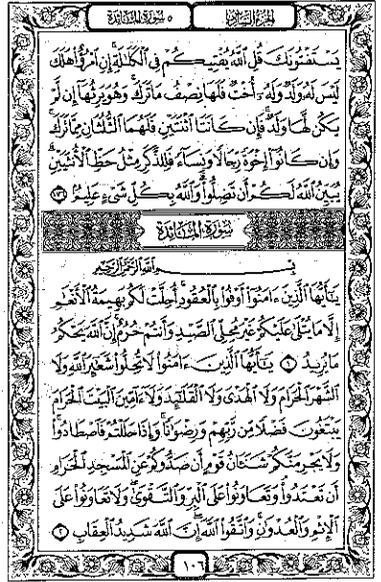 الجزء السادس
٥ سورة المائدة
يَسْتَفْتُونَكَ قُلِ ٱللَّهُ يُفْتِيكُمْ فِى ٱلْكَلَـٰلَةِ إِنِ ٱمْرُؤٌا۟ هَلَكَ
لَيْسَ لَهُۥ وَلَدٌ وَلَهُۥٓ أُخْتٌ فَلَهَا نِصْفُ مَا تَرَكَ وَهُوَ يَرِثُهَآ إِن لَّمْ
يَكُن لَّهَا وَلَدٌ فَإِن كَانَتَا ٱثْنَتَيْنِ فَلَهُمَا ٱلثُّلُثَانِ مِمَّا تَرَكَ
وَإِن كَانُوٓا۟ إِخْوَةً رِّجَالًا وَنِسَآءً فَلِلذَّكَرِ مِثْلُ حَظِّ ٱلْأُنثَيَيْنِ
يُبَيِّنُ ٱللَّهُ لَكُمْ أَن تَضِلُّوا۟ وَٱللَّهُ بِكُلِّ شَىْءٍ عَلِيمٌۢ ١٧٦
سورة المائدة
بِسْمِ ٱللَّهِ ٱلرَّحْمَـٰنِ ٱلرَّحِيمِ
يَـٰٓأَيُّهَا ٱلَّذِينَ ءَامَنُوٓا۟ أَوْفُوا۟ بِٱلْعُقُودِ أُحِلَّتْ لَكُم بَهِيمَةُ ٱلْأَنْعَـٰمِ
إِلَّا مَا يُتْلَىٰ عَلَيْكُمْ غَيْرَ مُحِلِّى ٱلصَّيْدِ وَأَنتُمْ حُرُمٌ إِنَّ ٱللَّهَ يَحْكُمُ
مَا يُرِيدُ ١ يَـٰٓأَيُّهَا ٱلَّذِينَ ءَامَنُوا۟ لَا تُحِلُّوا۟ شَعَـٰٓئِرَ ٱللَّهِ وَلَا
ٱلشَّهْرَ ٱلْحَرَامَ وَلَا ٱلْهَدْىَ وَلَا ٱلْقَلَـٰٓئِدَ وَلَآ ءَآمِّينَ ٱلْبَيْتَ ٱلْحَرَامَ
يَبْتَغُونَ فَضْلًا مِّن رَّبِّهِمْ وَرِضْوَٰنًا وَإِذَا حَلَلْتُمْ فَٱصْطَادُوا۟
وَلَا يَجْرِمَنَّكُمْ شَنَـَٔانُ قَوْمٍ أَن صَدُّوكُمْ عَنِ ٱلْمَسْجِدِ ٱلْحَرَامِ
أَن تَعْتَدُوا۟ وَتَعَاوَنُوا۟ عَلَى ٱلْبِرِّ وَٱلتَّقْوَىٰ وَلَا تَعَاوَنُوا۟ عَلَى
ٱلْإِثْمِ وَٱلْعُدْوَٰنِ وَٱتَّقُوا۟ ٱللَّهَ إِنَّ ٱللَّهَ شَدِيدُ ٱلْعِقَابِ ٢
١٠٦